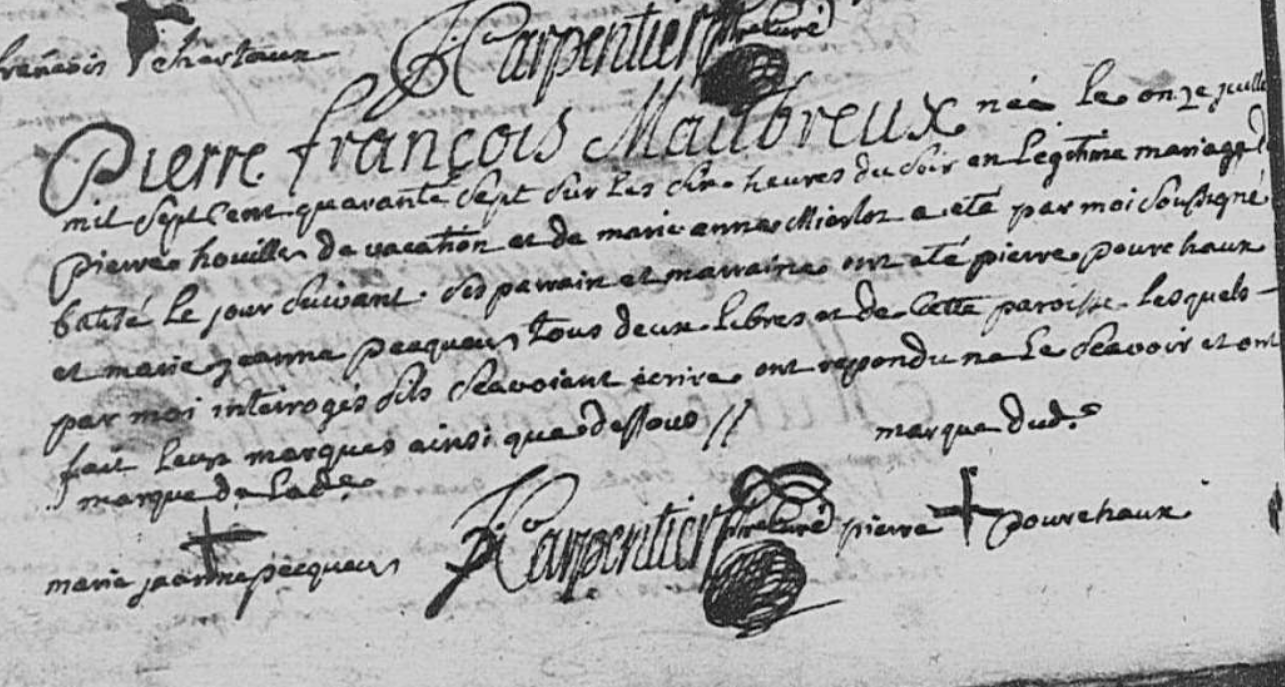 françois chartaux
J: Carpentier ptre Curé
Pierre françois Maubreux née le onze juillet
mil sept Cent quarante sept sur les six heures du soir en legitime mariage de
pierre houiller de vacation et de marie anne Mierlot a eté par moi soussigné
batisé le jour suivant. ses parrain et marraine ont eté pierre pourchaux
et marie jeanne pecqueur tous deux libres et de Cette paroisse lesquels
par moi interrogés s'ils sçavoient écrire ont repondu ne le sçavoir et ont
fait leurs marques ainsi que dessous //
marque de lade marque dud.
marie jeanne pecqueur J: Carpentier ptre Curé pierre pourchaux